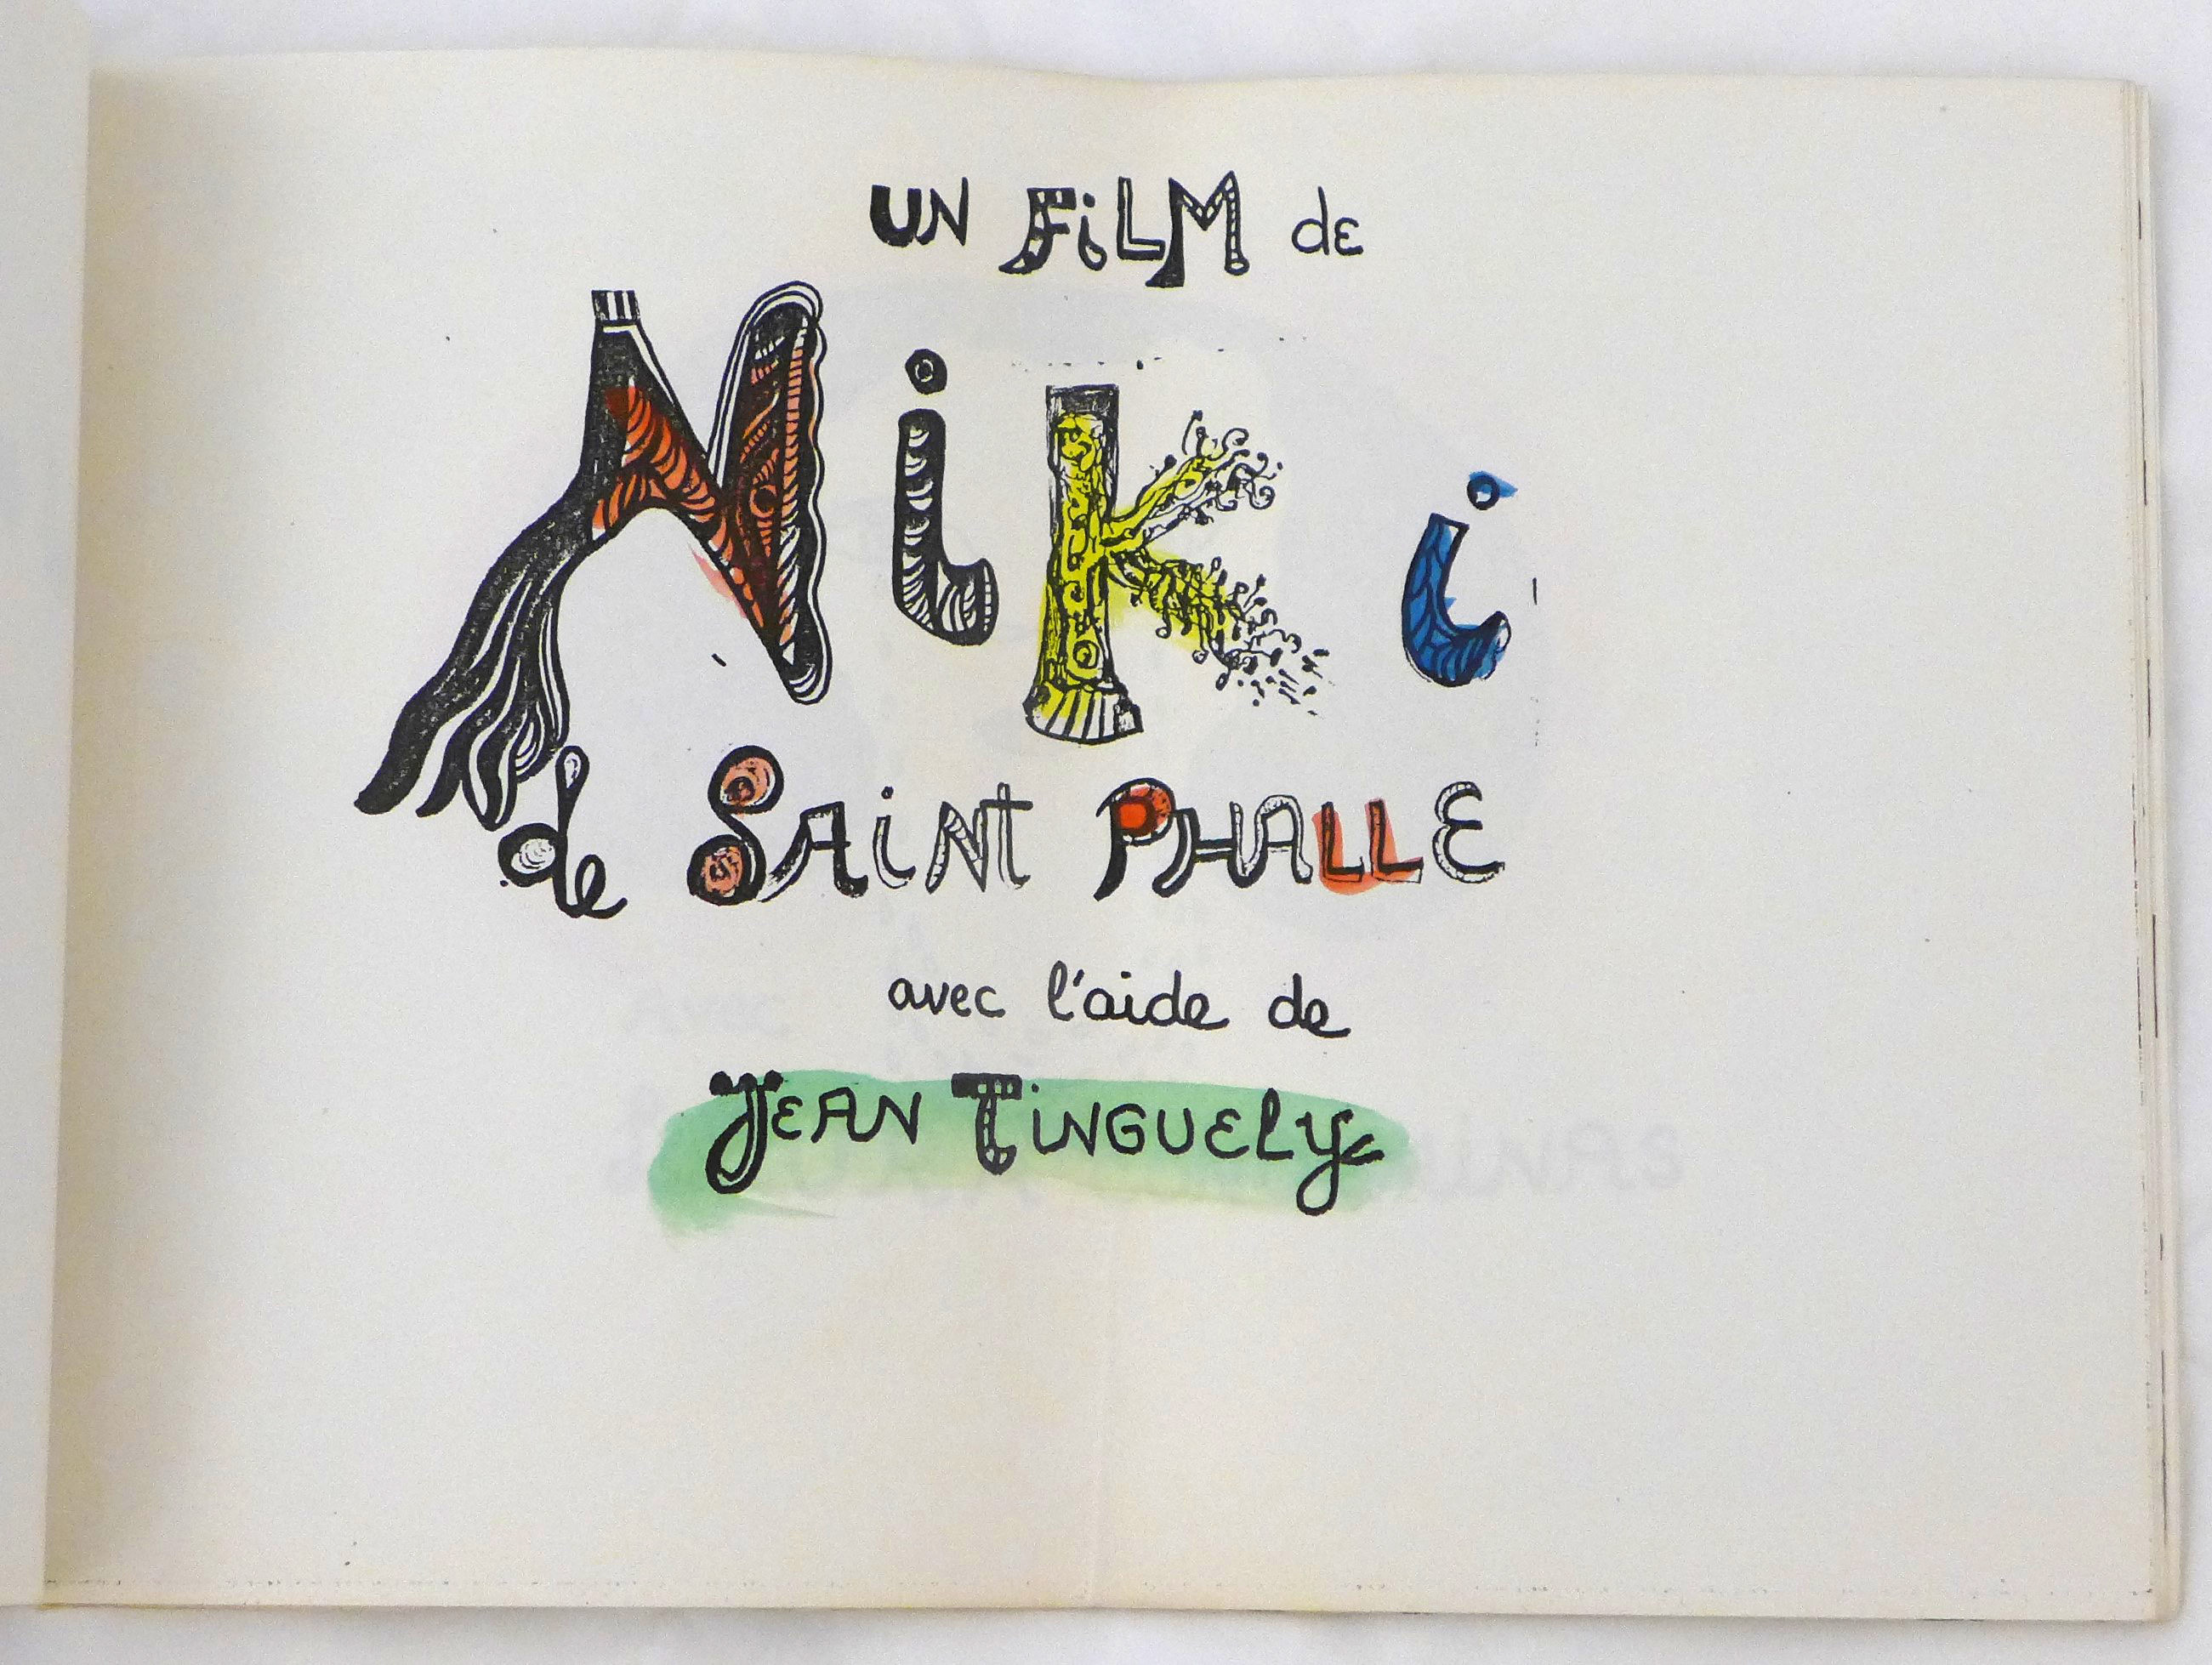 UN FiLM de
NiKi
de SAiNT PHALLE
avec l'aide de
JEAN TiNGUELY